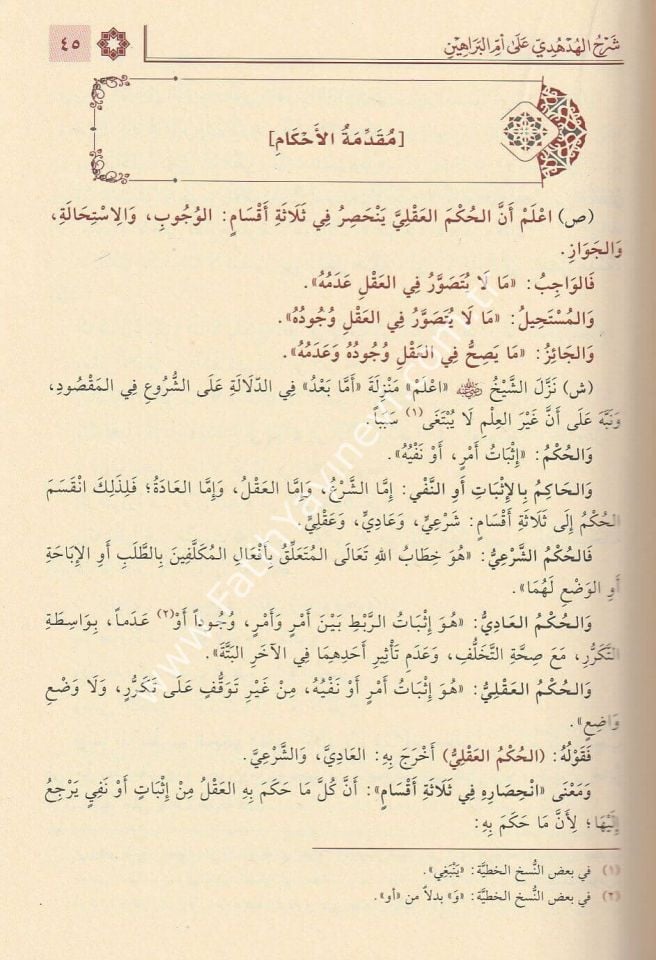 شَرْحُ الهُدْهُدِيِّ عَلَى أُمِّ البَرَاهِينِ
٤٥
[مُقَدِّمَةُ الأَحْكَامِ]
(ص) اعْلَمْ أَنَّ الحُكْمَ العَقْلِيَّ يَنْحَصِرُ فِي ثَلَاثَةِ أَقْسَامٍ: الوُجُوبِ، وَالِاسْتِحَالَةِ،
وَالجَوَازِ.
فَالوَاجِبُ: «مَا لَا يُتَصَوَّرُ فِي العَقْلِ عَدَمُهُ».
وَالمُسْتَحِيلُ: «مَا لَا يُتَصَوَّرُ فِي العَقْلِ وُجُودُهُ».
وَالجَائِزُ: «مَا يَصِحُّ فِي العَقْلِ وُجُودُهُ وَعَدَمُهُ».
(ش) نَزَّلَ الشَّيْخُ رضي الله عنه «اعْلَمْ» مَنْزِلَةَ «أَمَّا بَعْدُ» فِي الدِّلَالَةِ عَلَى الشُّرُوعِ فِي المَقْصُودِ،
وَنَبَّهَ عَلَى أَنَّ غَيْرَ العِلْمِ لَا يُبْتَغَى (١) سَبَباً.
وَالحُكْمُ: «إِثْبَاتُ أَمْرٍ، أَوْ نَفْيُهُ».
وَالحَاكِمُ بِالإِثْبَاتِ أَوِ النَّفْيِ: إِمَّا الشَّرْعُ، وَإِمَّا العَقْلُ، وَإِمَّا العَادَةُ؛ فَلِذَلِكَ انْقَسَمَ
الحُكْمُ إِلَى ثَلَاثَةِ أَقْسَامٍ: شَرْعِيٍّ، وَعَادِيٍّ، وَعَقْلِيٍّ.
فَالحُكْمُ الشَّرْعِيُّ: «هُوَ خِطَابُ اللهِ تَعَالَى المُتَعَلِّقُ بِأَفْعَالِ المُكَلَّفِينَ بِالطَّلَبِ أَوِ الإِبَاحَةِ
أَوِ الوَضْعِ لَهُمَا».
وَالحُكْمُ العَادِيُّ: «هُوَ إِثْبَاتُ الرَّبْطِ بَيْنَ أَمْرٍ وَأَمْرٍ، وُجُوداً أَوْ (٢) عَدَماً، بِوَاسِطَةِ
التَّكَرُّرِ، مَعَ صِحَّةِ التَّخَلُّفِ، وَعَدَمِ تَأْثِيرِ أَحَدِهِمَا فِي الآخَرِ البَتَّةَ».
وَالحُكْمُ العَقْلِيُّ: «هُوَ إِثْبَاتُ أَمْرٍ أَوْ نَفْيُهُ، مِنْ غَيْرِ تَوَقُّفٍ عَلَى تَكَرُّرٍ، وَلَا وَضْعِ
وَاضِعٍ».
فَقَوْلُهُ: (الحُكْمُ العَقْلِيُّ) أَخْرَجَ بِهِ: العَادِيَّ، وَالشَّرْعِيَّ.
وَمَعْنَى «انْحِصَارِهِ فِي ثَلَاثَةِ أَقْسَامٍ»: أَنَّ كُلَّ مَا حَكَمَ بِهِ العَقْلُ مِنْ إِثْبَاتٍ أَوْ نَفْيٍ يَرْجِعُ
إِلَيْهَا؛ لِأَنَّ مَا حَكَمَ بِهِ:
(١) في بعض النُّسخ الخطيَّة: «يَنْبَغِي».
(٢) في بعض النُّسخ الخطيَّة: «وَ» بدلاً من «أو».
www.FatihYayinevi.com.tr